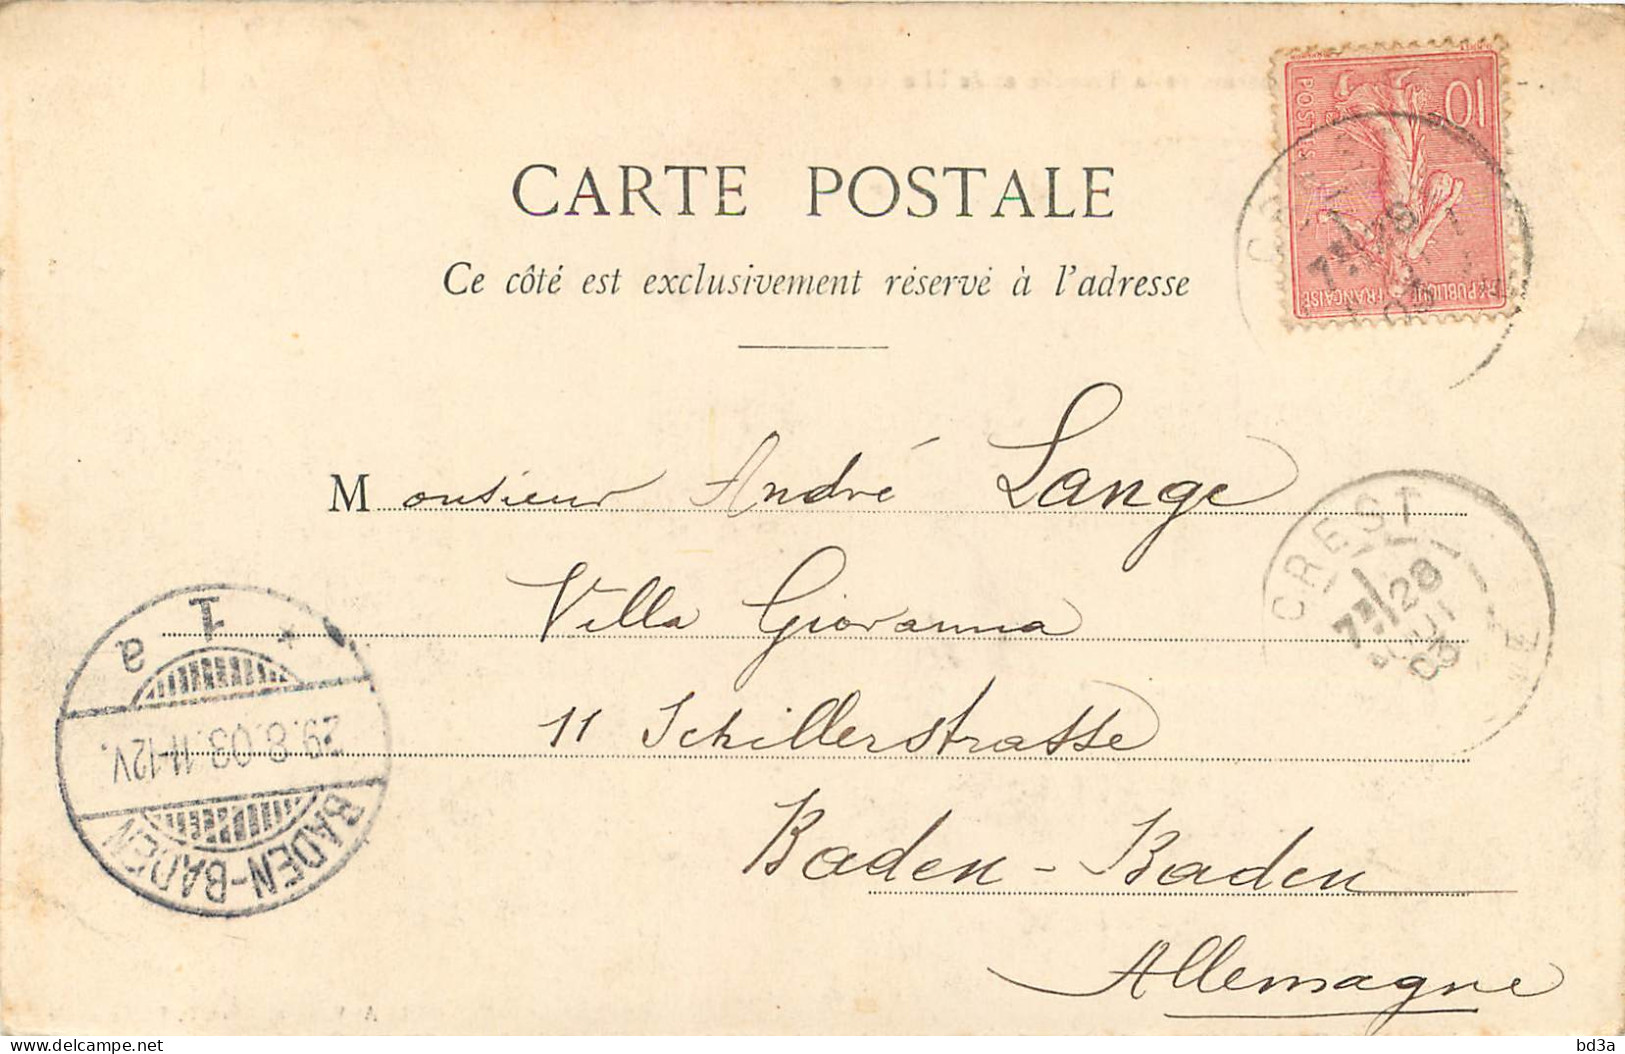 CARTE POSTALE
Ce côté est exclusivement réservé à l'adresse
10
POSTES
RÉPUBLIQUE FRANÇAISE
Monsieur André Lange
Villa Giovanna
11 Schillerstrasse
Baden-Baden
Allemagne
CREST
28
03
BADEN-BADEN
29.8.03.11-12V.
* 1 a
bd3a